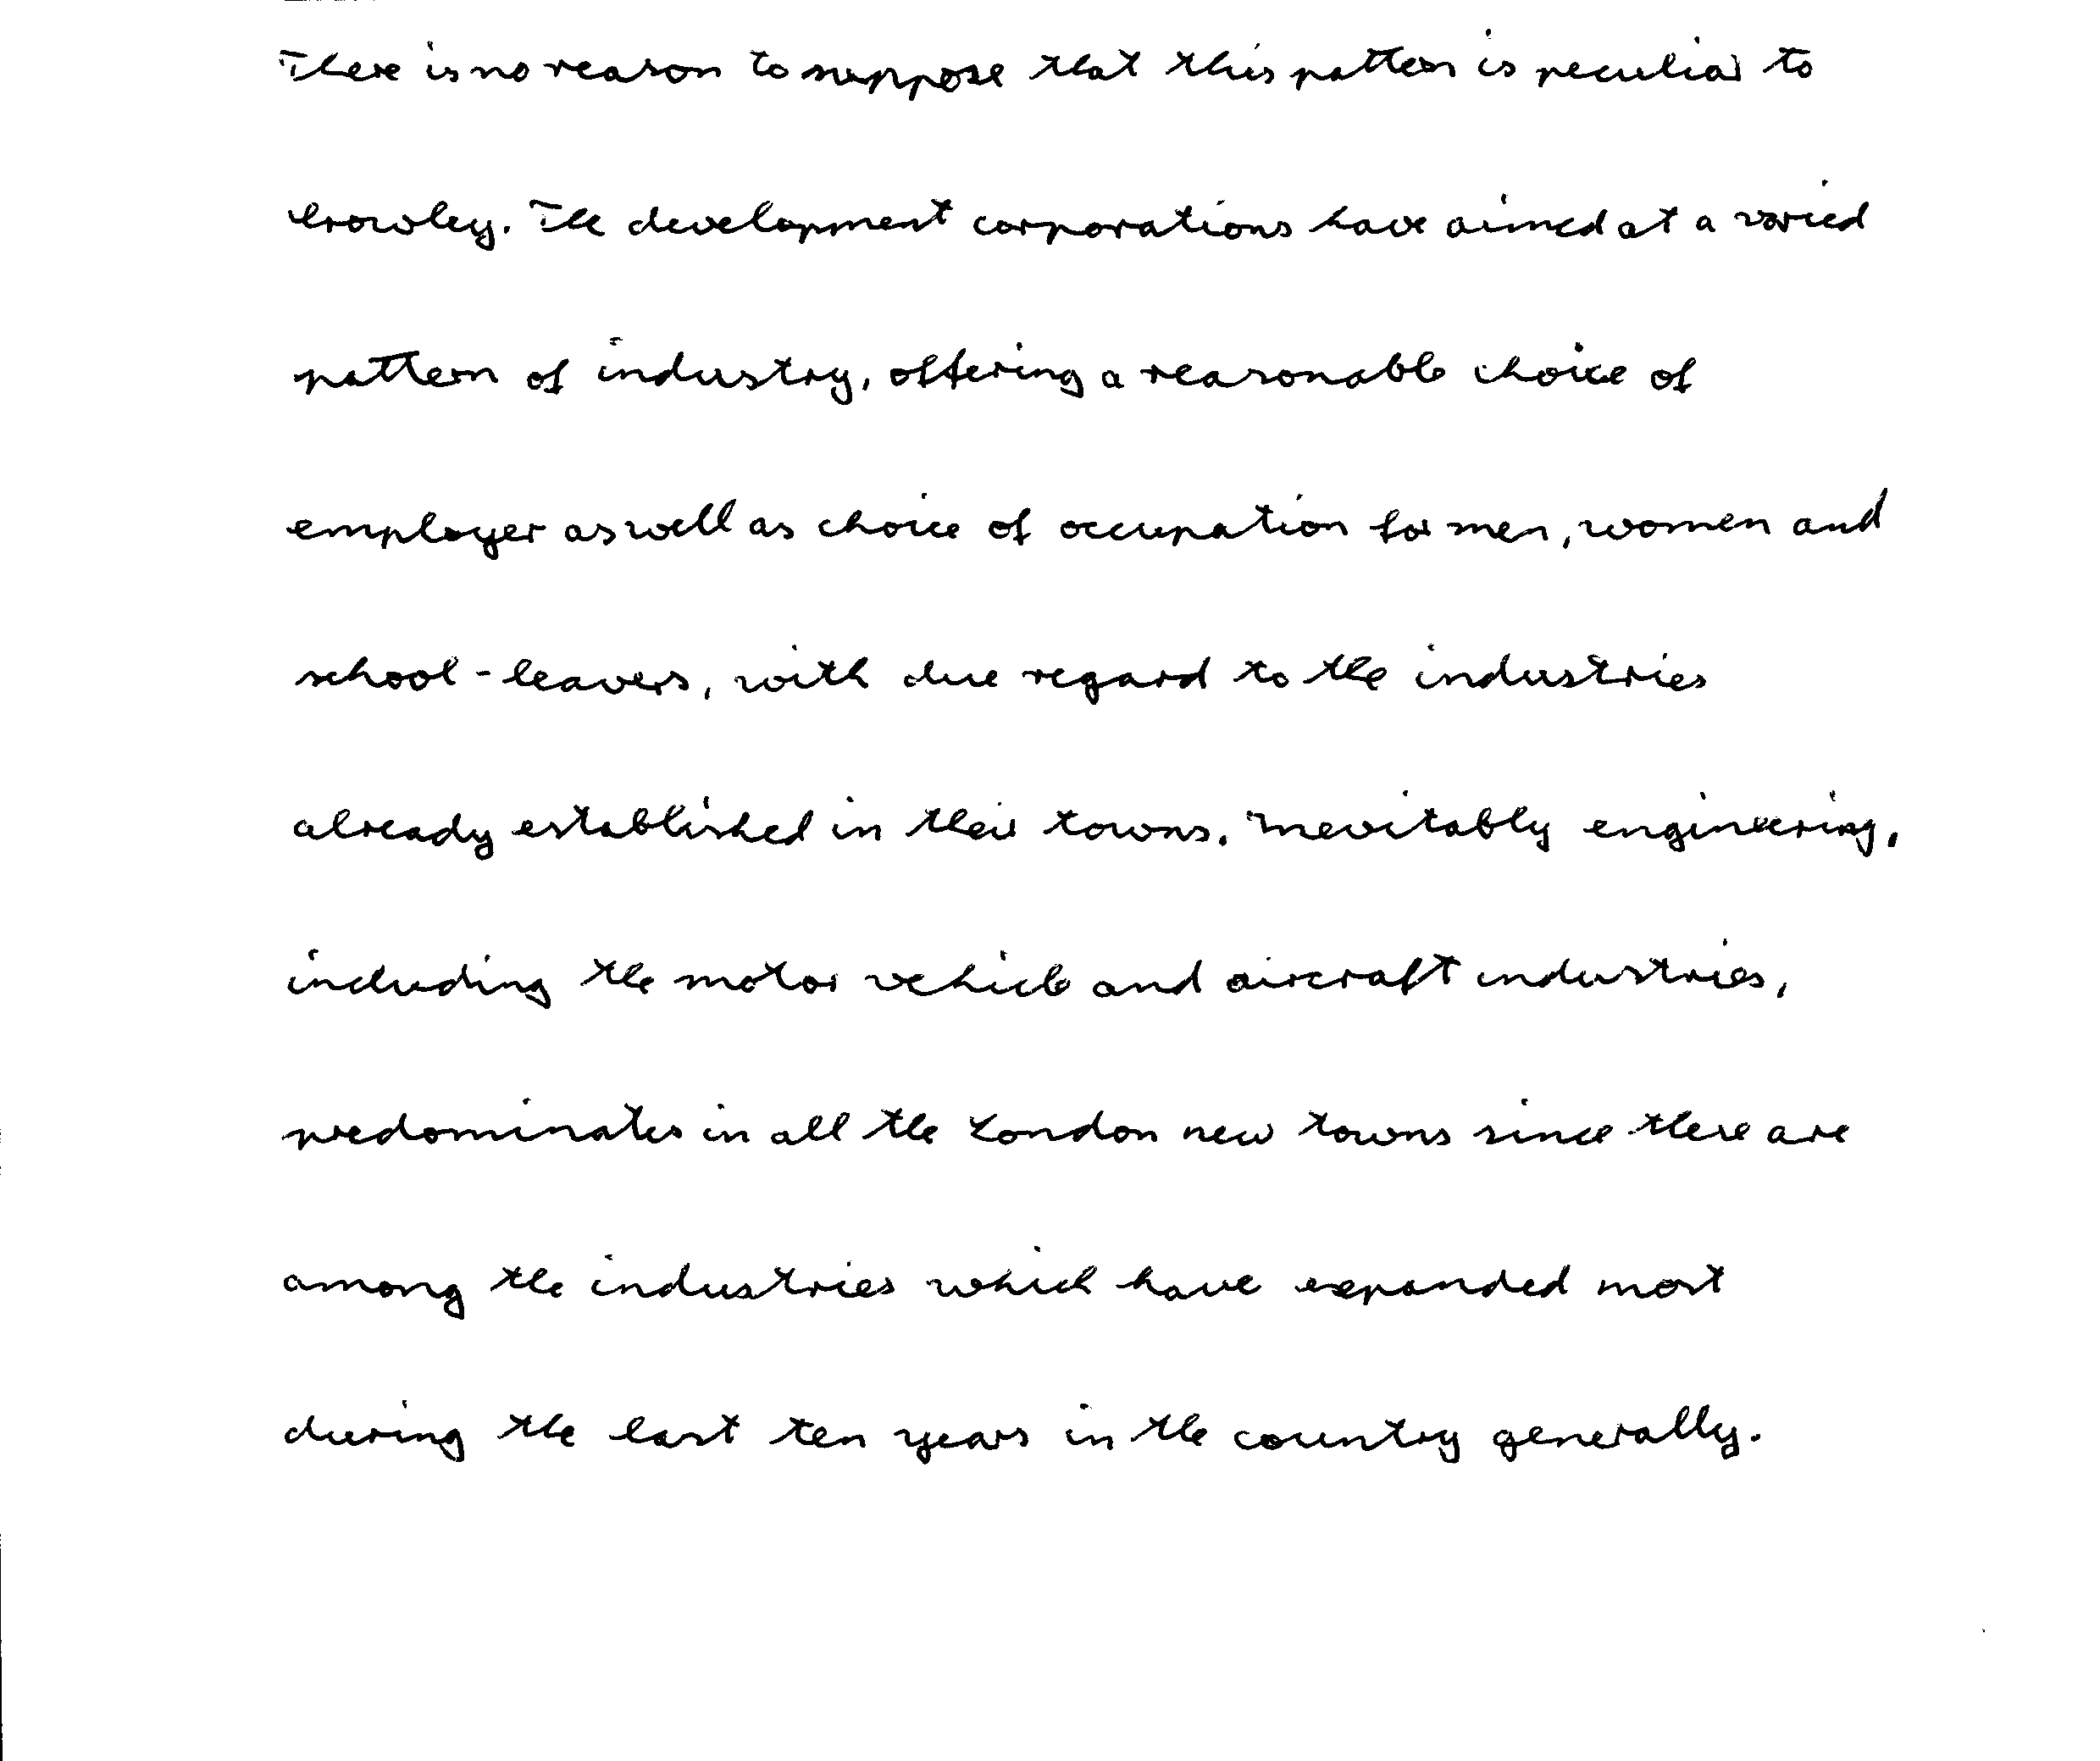 There is no reason to suppose that this pattern is peculiar to
Crawley. The development corporations have aimed at a varied
pattern of industry, offering a reasonable choice of
employer as well as choice of occupation for men, women and
school-leavers, with due regard to the industries
already established in their towns. Inevitably engineering,
including the motor vehicle and aircraft industries,
predominates in all the London new towns since there are
among the industries which have expanded most
during the last ten years in the country generally.